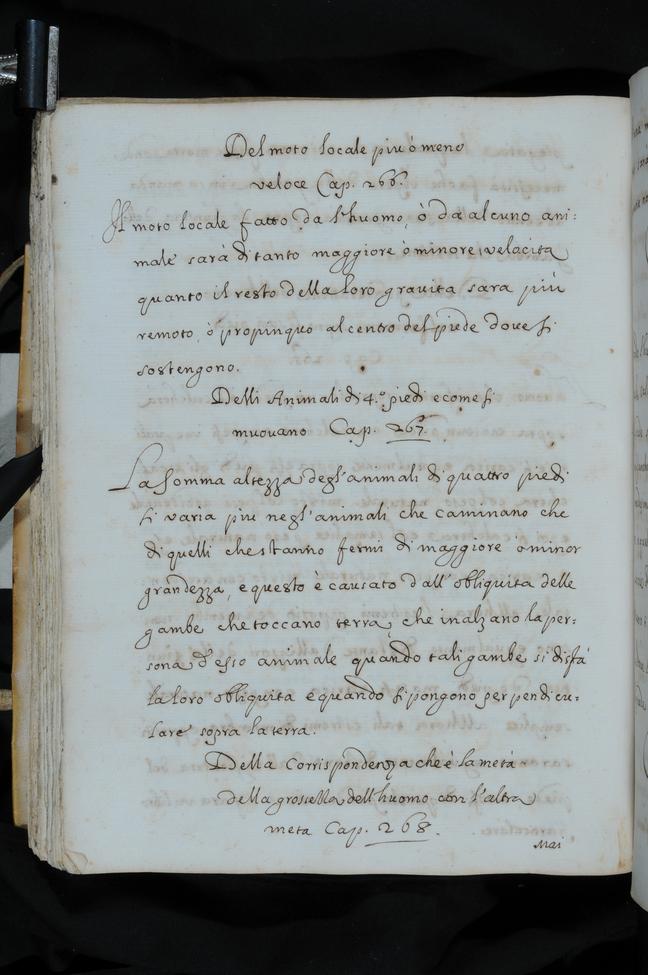 Del moto locale più ò meno
veloce Cap. 266.
Il moto locale fatto da l'huomo, ò da alcuno ani=
male sarà di tanto maggiore ò minore velacita
quanto il resto della loro gravita sara più
remoto, ò propinquo al centro del piede dove si
sostengono.
Delli Animali di 4.º piedi e come si
muovano Cap. 267.
La somma altezza degl'animali di quattro piedi
si varia più negl'animali che caminano che
di quelli che stanno fermi di maggiore ò minor
grandezza, e questo è causato dall'obliquita delle
gambe che toccano terra, che inalzano la per=
sona d'esso animale quando tali gambe si disfà
la loro obliquita e quando si pongono perpendicu=
lare sopra la terra.
Della Corrispondenza che è la metà
della grossezza dell'huomo con l'altra
meta Cap. 268.
Mai